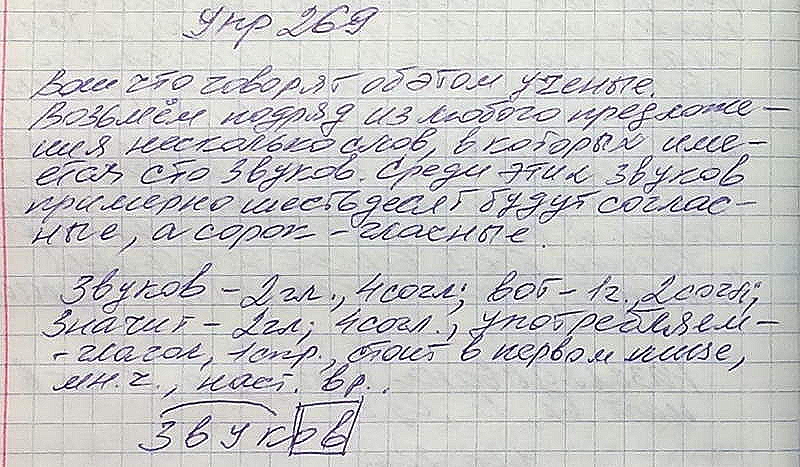 Упр 269
Вот что говорят об этом ученые.
Возьмём подряд из любого предложе-
ния несколько слов, в которых име-
ется сто звуков. Среди этих звуков
примерно шестьдесят будут соглас-
ные, а сорок - гласные.
Звуков - 2 гл., 4 согл; вот - 1 г., 2 согл;
Значит - 2 гл; 4 согл., употребляем-
- глагол, 1 спр., стоит в первом лице,
мн. ч., наст. вр..
Звуков